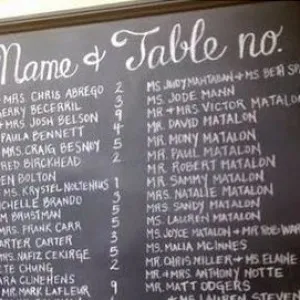 Name & Table no.
MRS. CHRIS ABREGO 2
BECERRIL 3
MRS JOSH BELSON 9
PAULA BENNETT 4
MRS. CRAIG BESNOY 5
RED BIRCKHEAD 2
EN BOLTON
MS. KRYSTEL NOLTENIUS 1
CHELLE BRANDO 3
BRISTMAN 5
MRS. FRANK CARR 5
ARTER CARTER 3
MRS. NAFIZ CEKIRGE 5
TE CHUNG 2
ARA CLINEHENS
MR. MARK LAFLEUR 9
MS. JUDY MAHTABAN & MS. BETH
MS. JODE MANN
MR. & MRS. VICTOR MATALON
MR. DAVID MATALON
MR. MONY MATALON
MR. PAUL MATALON
MR. ROBERT MATALON
MR. SAMMY MATALON
MRS. NATALIE MATALON
MRS. SANDY MATALON
MS. LAUREN MATALON
MS. JOYCE MATALON & MR. ROB
MS. MALIA McINNES
MR. CHRIS MILLER & MS. ELAINE
MR. & MRS. ANTHONY NOTTE
MR. MATT ODGERS